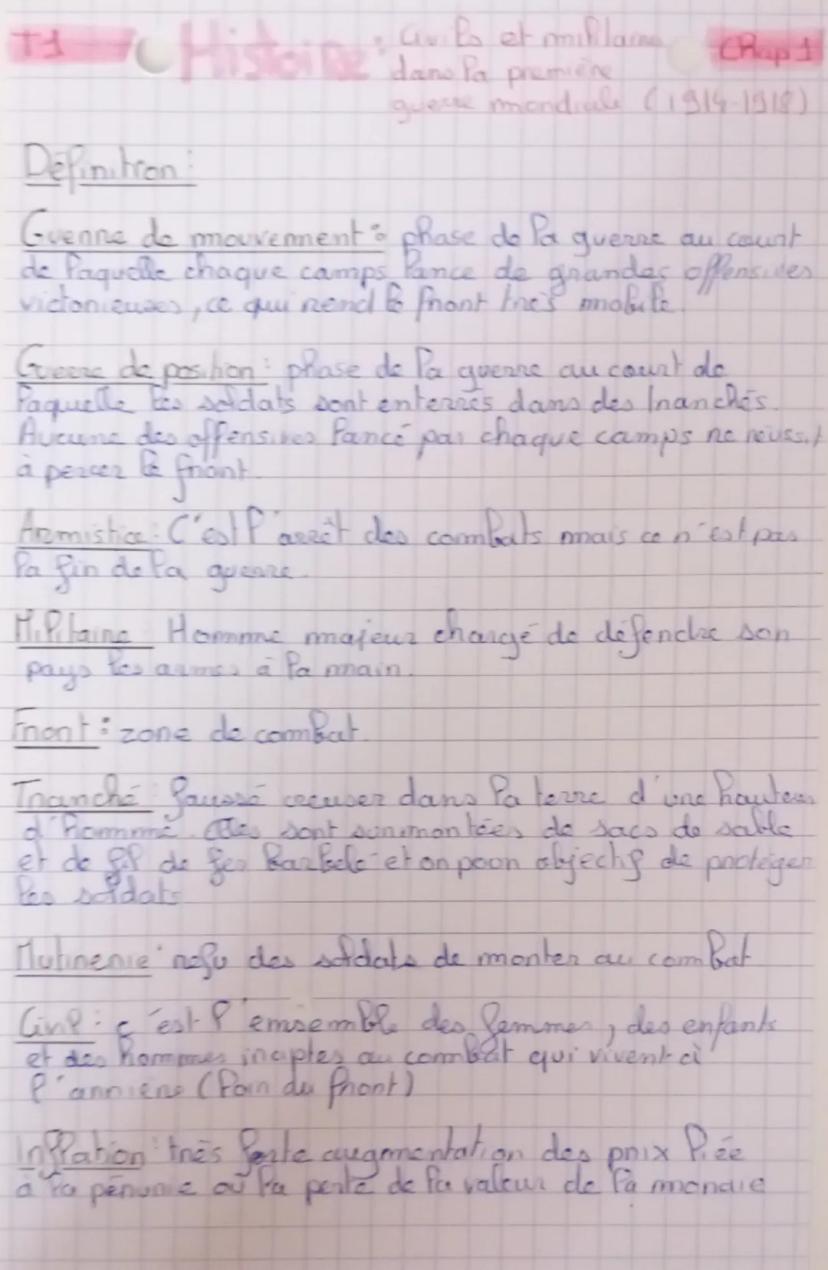 T1 Histoire : Civils et militaires Chap 1
dans la première
guerre mondiale (1914-1918)
Définition :
Guerre de mouvement : phase de la guerre au court
de laquelle chaque camps lance de grandes offensives
victorieuses, ce qui rend le front très mobile.
Guerre de position : phase de la guerre au court de
laquelle les soldats sont enterrés dans des tranchés.
Aucune des offensives lancé par chaque camps ne réussit
à percer le front.
Armistice : C'est l'arrêt des combats mais ce n'est pas
la fin de la guerre.
Militaire Homme majeur chargé de défendre son
pays les armes à la main.
Front : zone de combat.
Tranché : faussé creuser dans la terre d'une hauteur
d'homme. Elles sont surmontées de sacs de sable
et de fil de fer barbelé et on pour objectif de protéger
les soldats
Mutinerie : refu des soldats de monter au combat
Civil : c'est l'ensemble des femmes, des enfants
et des hommes inaptes au combat qui vivent à
l'arrière (loin du front)
Inflation : très forte augmentation des prix liée
à la pénurie où la perte de la valeur de la monaie